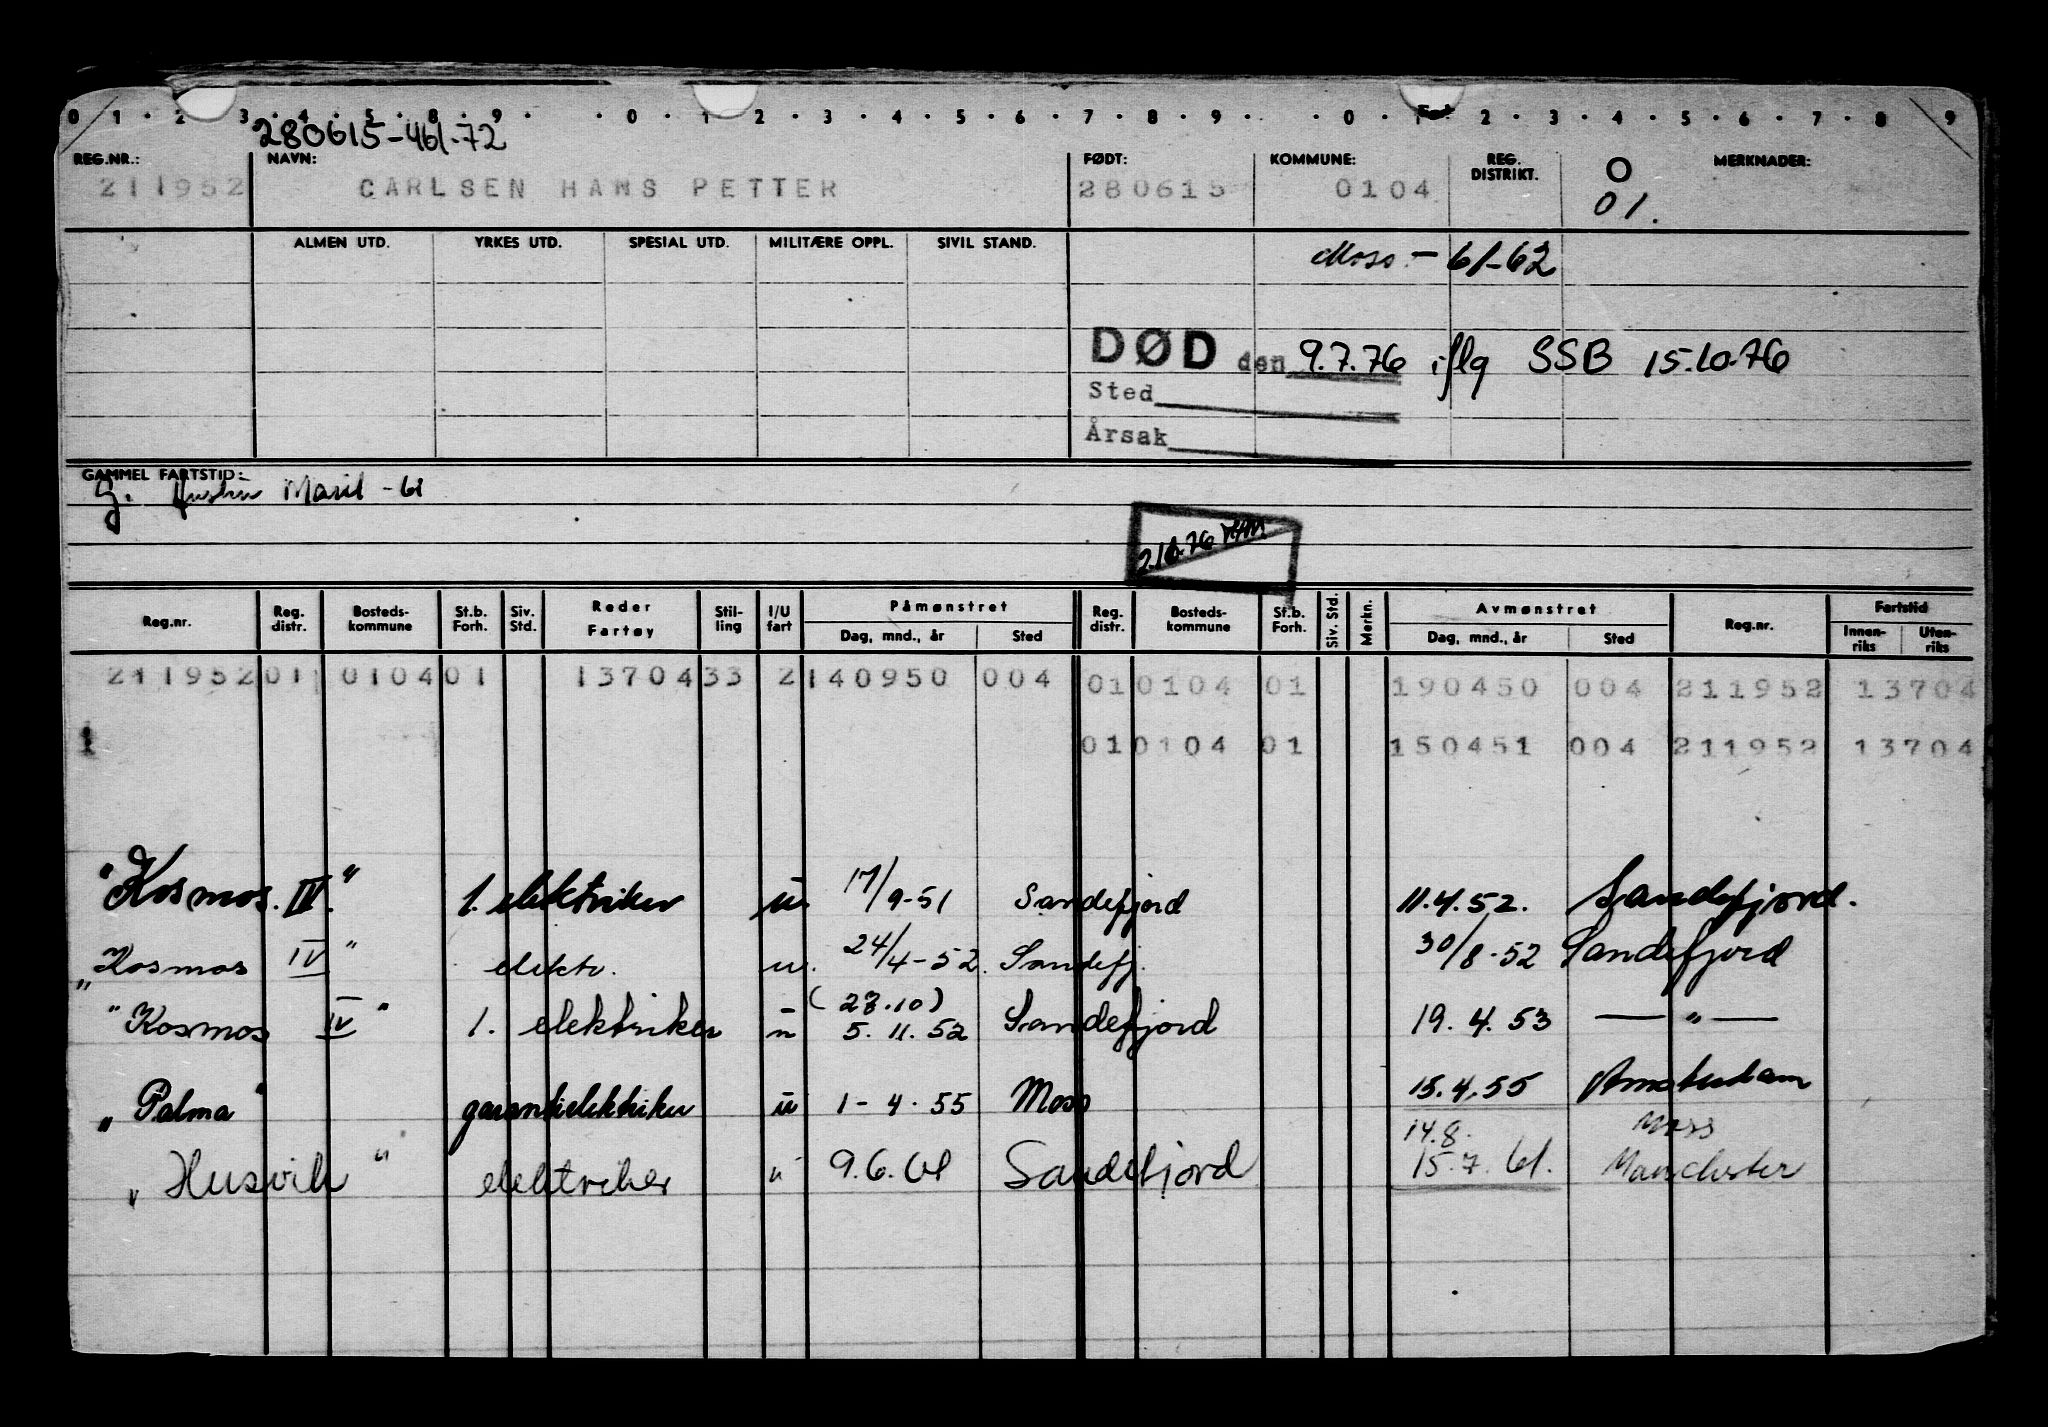 0 1 2 3 4 5 8 9 0 1 2 3 4 5 6 7 8 9 0 1 2 3 4 5 6 7 8 9
280615-461.72
REG.NR.: NAVN: FØDT: KOMMUNE: REG. DISTRIKT. O MERKNADER:
211952 CARLSEN HANS PETTER 280615 0104 01.
ALMEN UTD. YRKES UTD. SPESIAL UTD. MILITÆRE OPPL. SIVIL STAND.
Moss - 61-62
DØD den 9.7.76 iflg SSB 15.10.76
Sted
Årsak
GAMMEL FARTSTID:
G. Maril - 61
Reg.nr. Reg. distr. Bosteds- kommune St.b. Forh. Siv. Std. Reder Fartøy Stil- ling I/U fart Påmønstret Dag, mnd., år Sted Reg. distr. Bosteds- kommune St.b. Forh. Siv. Std. Merkn. Avmønstret Dag, mnd., år Sted Reg.nr. Fartstid Innen- riks Uten- riks
211952 01 0104 01 13704 33 2 140950 004 01 0104 01 190450 004 211952 13704
1 01 0104 01 150451 004 211952 13704
"Kosmos. IV." 1. elektriker u. 17/9-51 Sandefjord 11.4.52. Sandefjord.
"Kosmos IV" elektr. u. 24/4-52. Sandefj. 30/8-52 Sandefjord
"Kosmos IV" 1. elektriker u (27.10) 5.11.52 Sandefjord 19.4.53 — " —
"Palma" garantielektriker u 1-4.55 Moss 15.4.55 Amsterdam
14.8. Moss
"Husvik" elektriker u 9.6.61 Sandefjord 15.7.61. Manchester